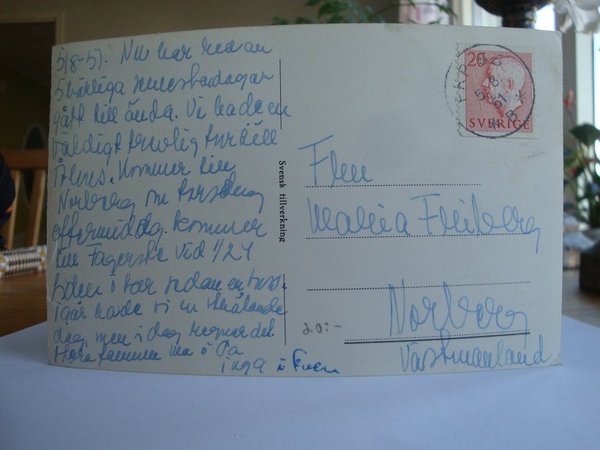 5/8-57. Nu har redan
5 härliga semesterdagar
gått till ända. Vi hade en
väldigt trevlig tur till
Kommer till
Norberg om torsdag
eftermiddag. Kommer
till Fagersta vid 1/24
tiden i
igår hade vi en strålande
dag, men i dag regnar det.
Hoppas
Inga o Sven
Svensk tillverkning
20
SVERIGE
Maria Friberg
Norberg
Västmanland
20:-